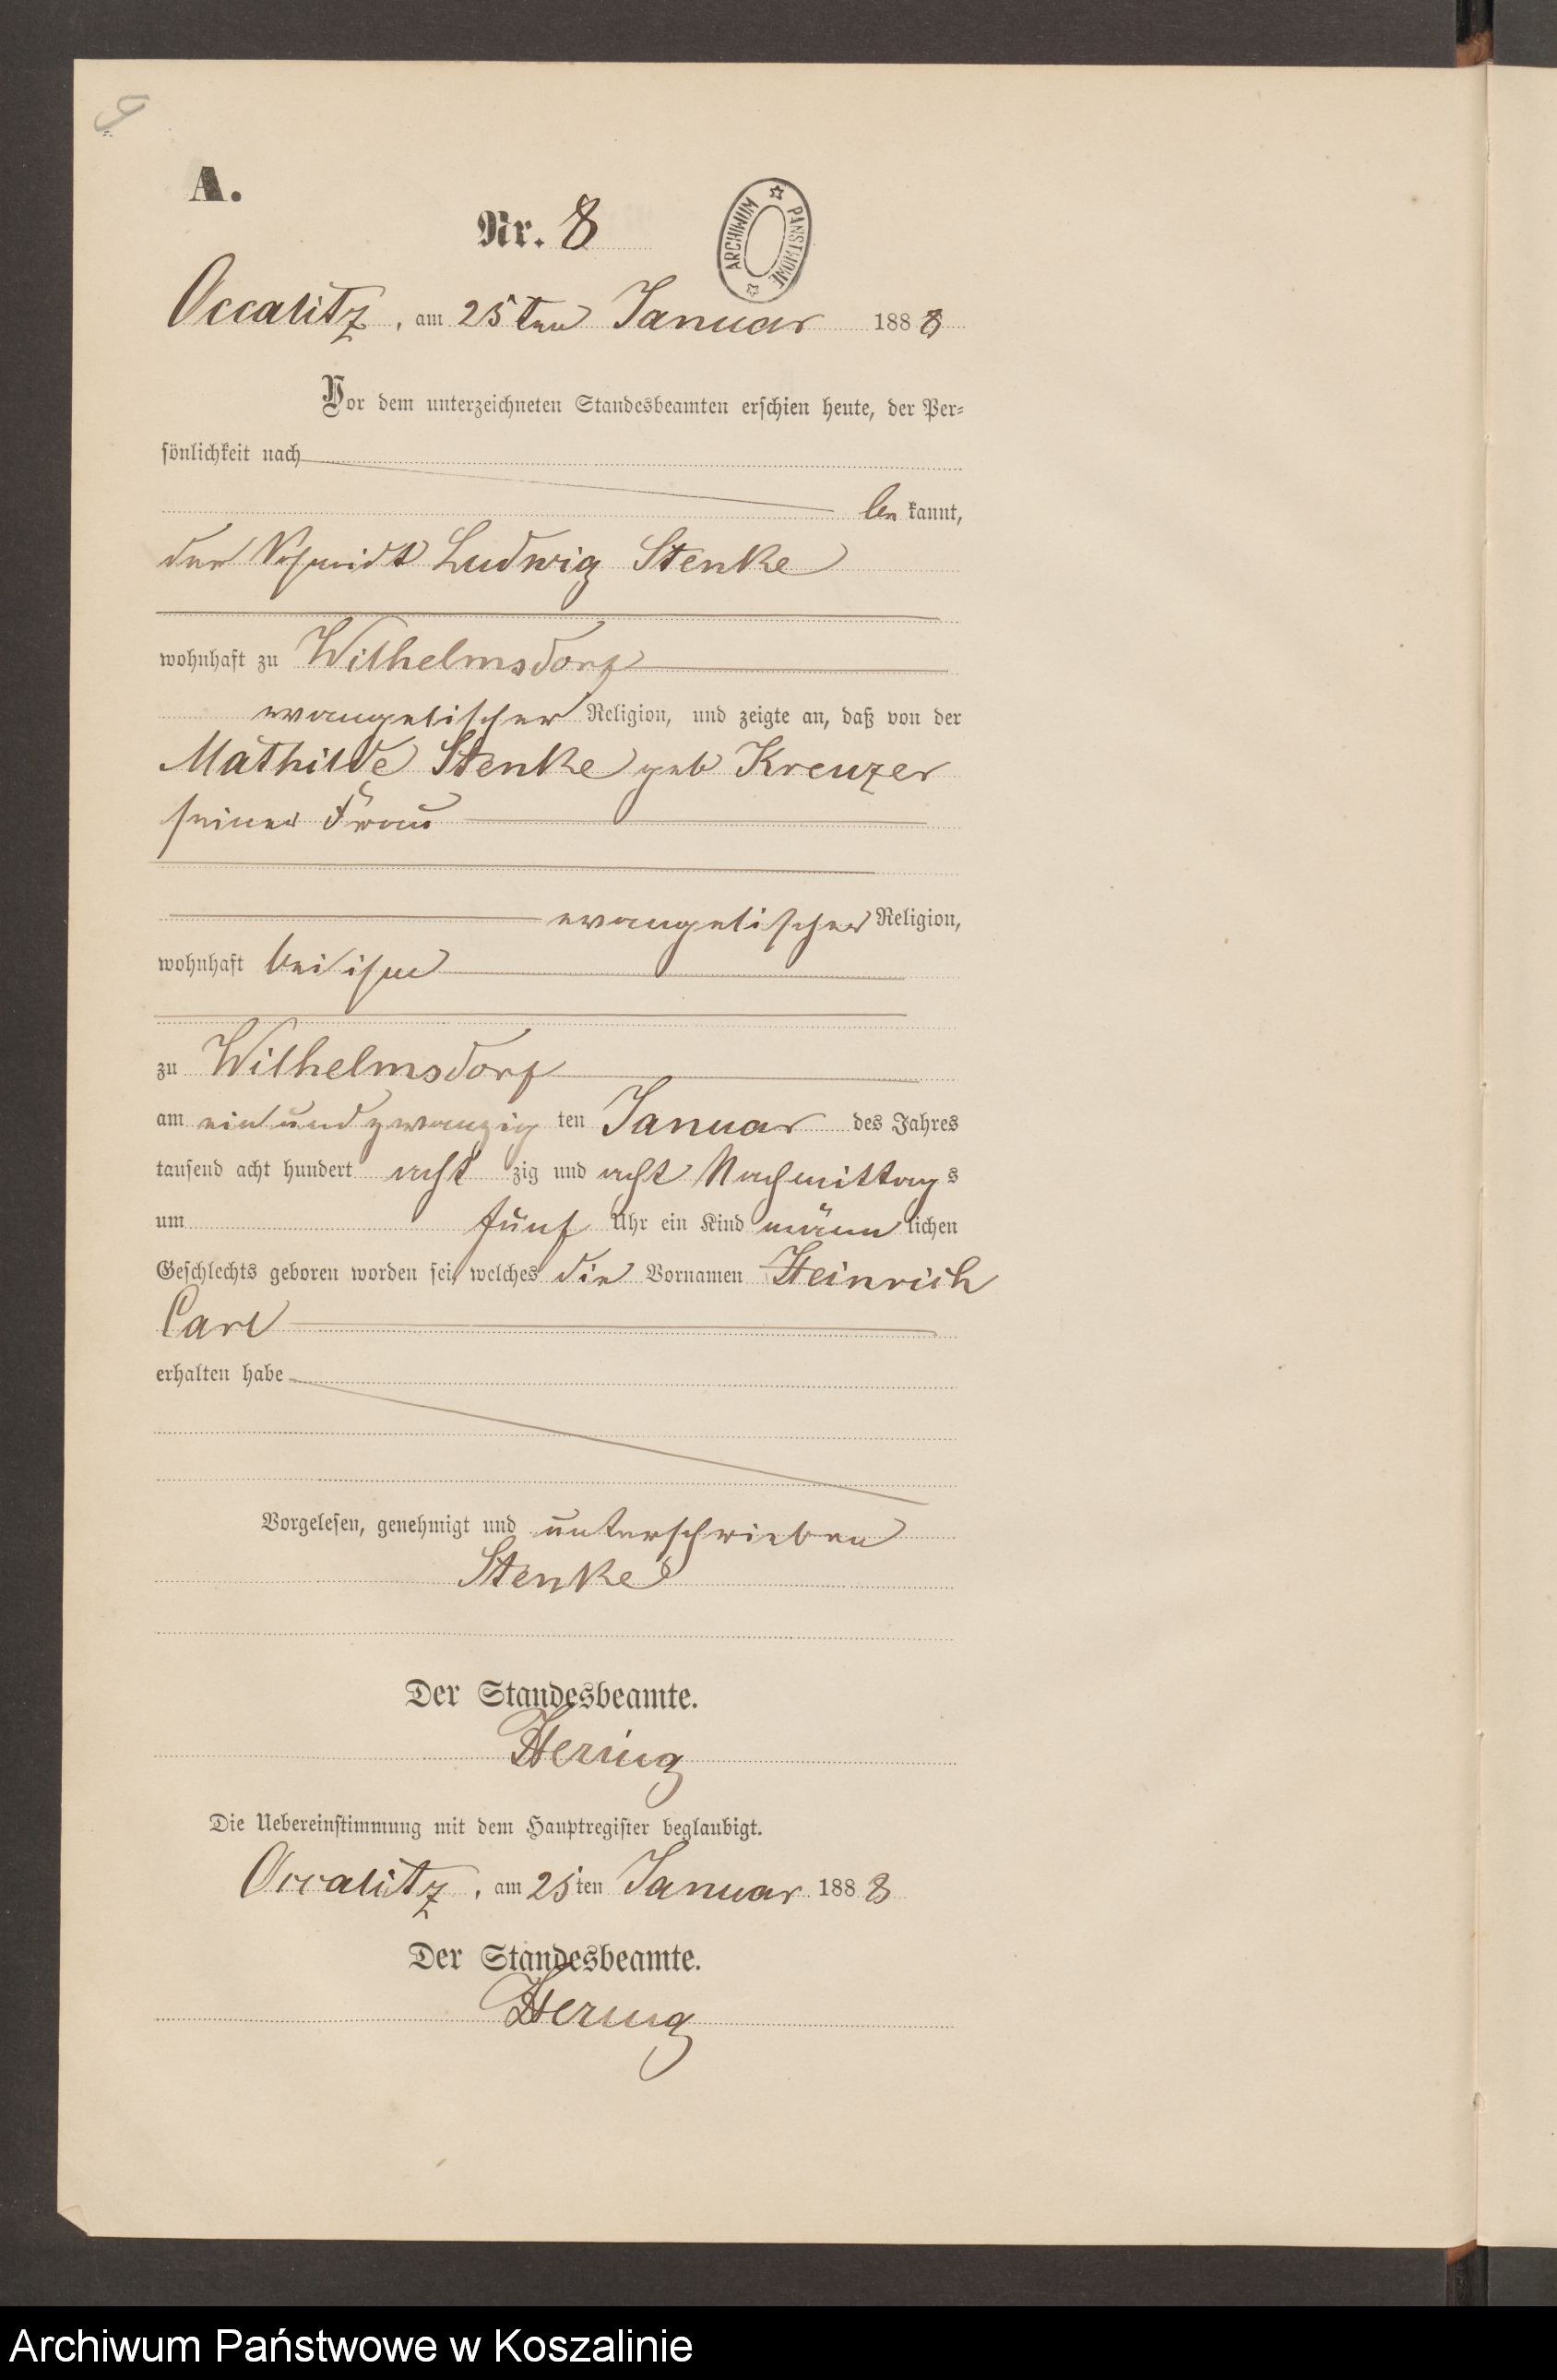 A.
Nr. 8
ARCHIWUM PAŃSTWOWE
Occalitz, am 25ten Januar 1888
Vor dem unterzeichneten Standesbeamten erschien heute, der Per=
sönlichkeit nach
be kannt,
der Schmidt Ludwig Stenke
wohnhaft zu Wilhelmsdorf
evangelischer Religion, und zeigte an, daß von der
Mathilde Stenke geb Kreuzer
seiner Frau
evangelischer Religion,
wohnhaft bei ihm
zu Wilhelmsdorf
am ein und zwanzig ten Januar des Jahres
tausend acht hundert acht zig und acht Nachmittags
um fünf Uhr ein Kind männ lichen
Geschlechts geboren worden sei, welches die Vornamen Heinrich
Carl
erhalten habe
Vorgelesen, genehmigt und unterschrieben
Stenke
Der Standesbeamte.
Hering
Die Uebereinstimmung mit dem Hauptregister beglaubigt.
Occalitz, am 25ten Januar 1888
Der Standesbeamte.
Hering
Archiwum Państwowe w Koszalinie